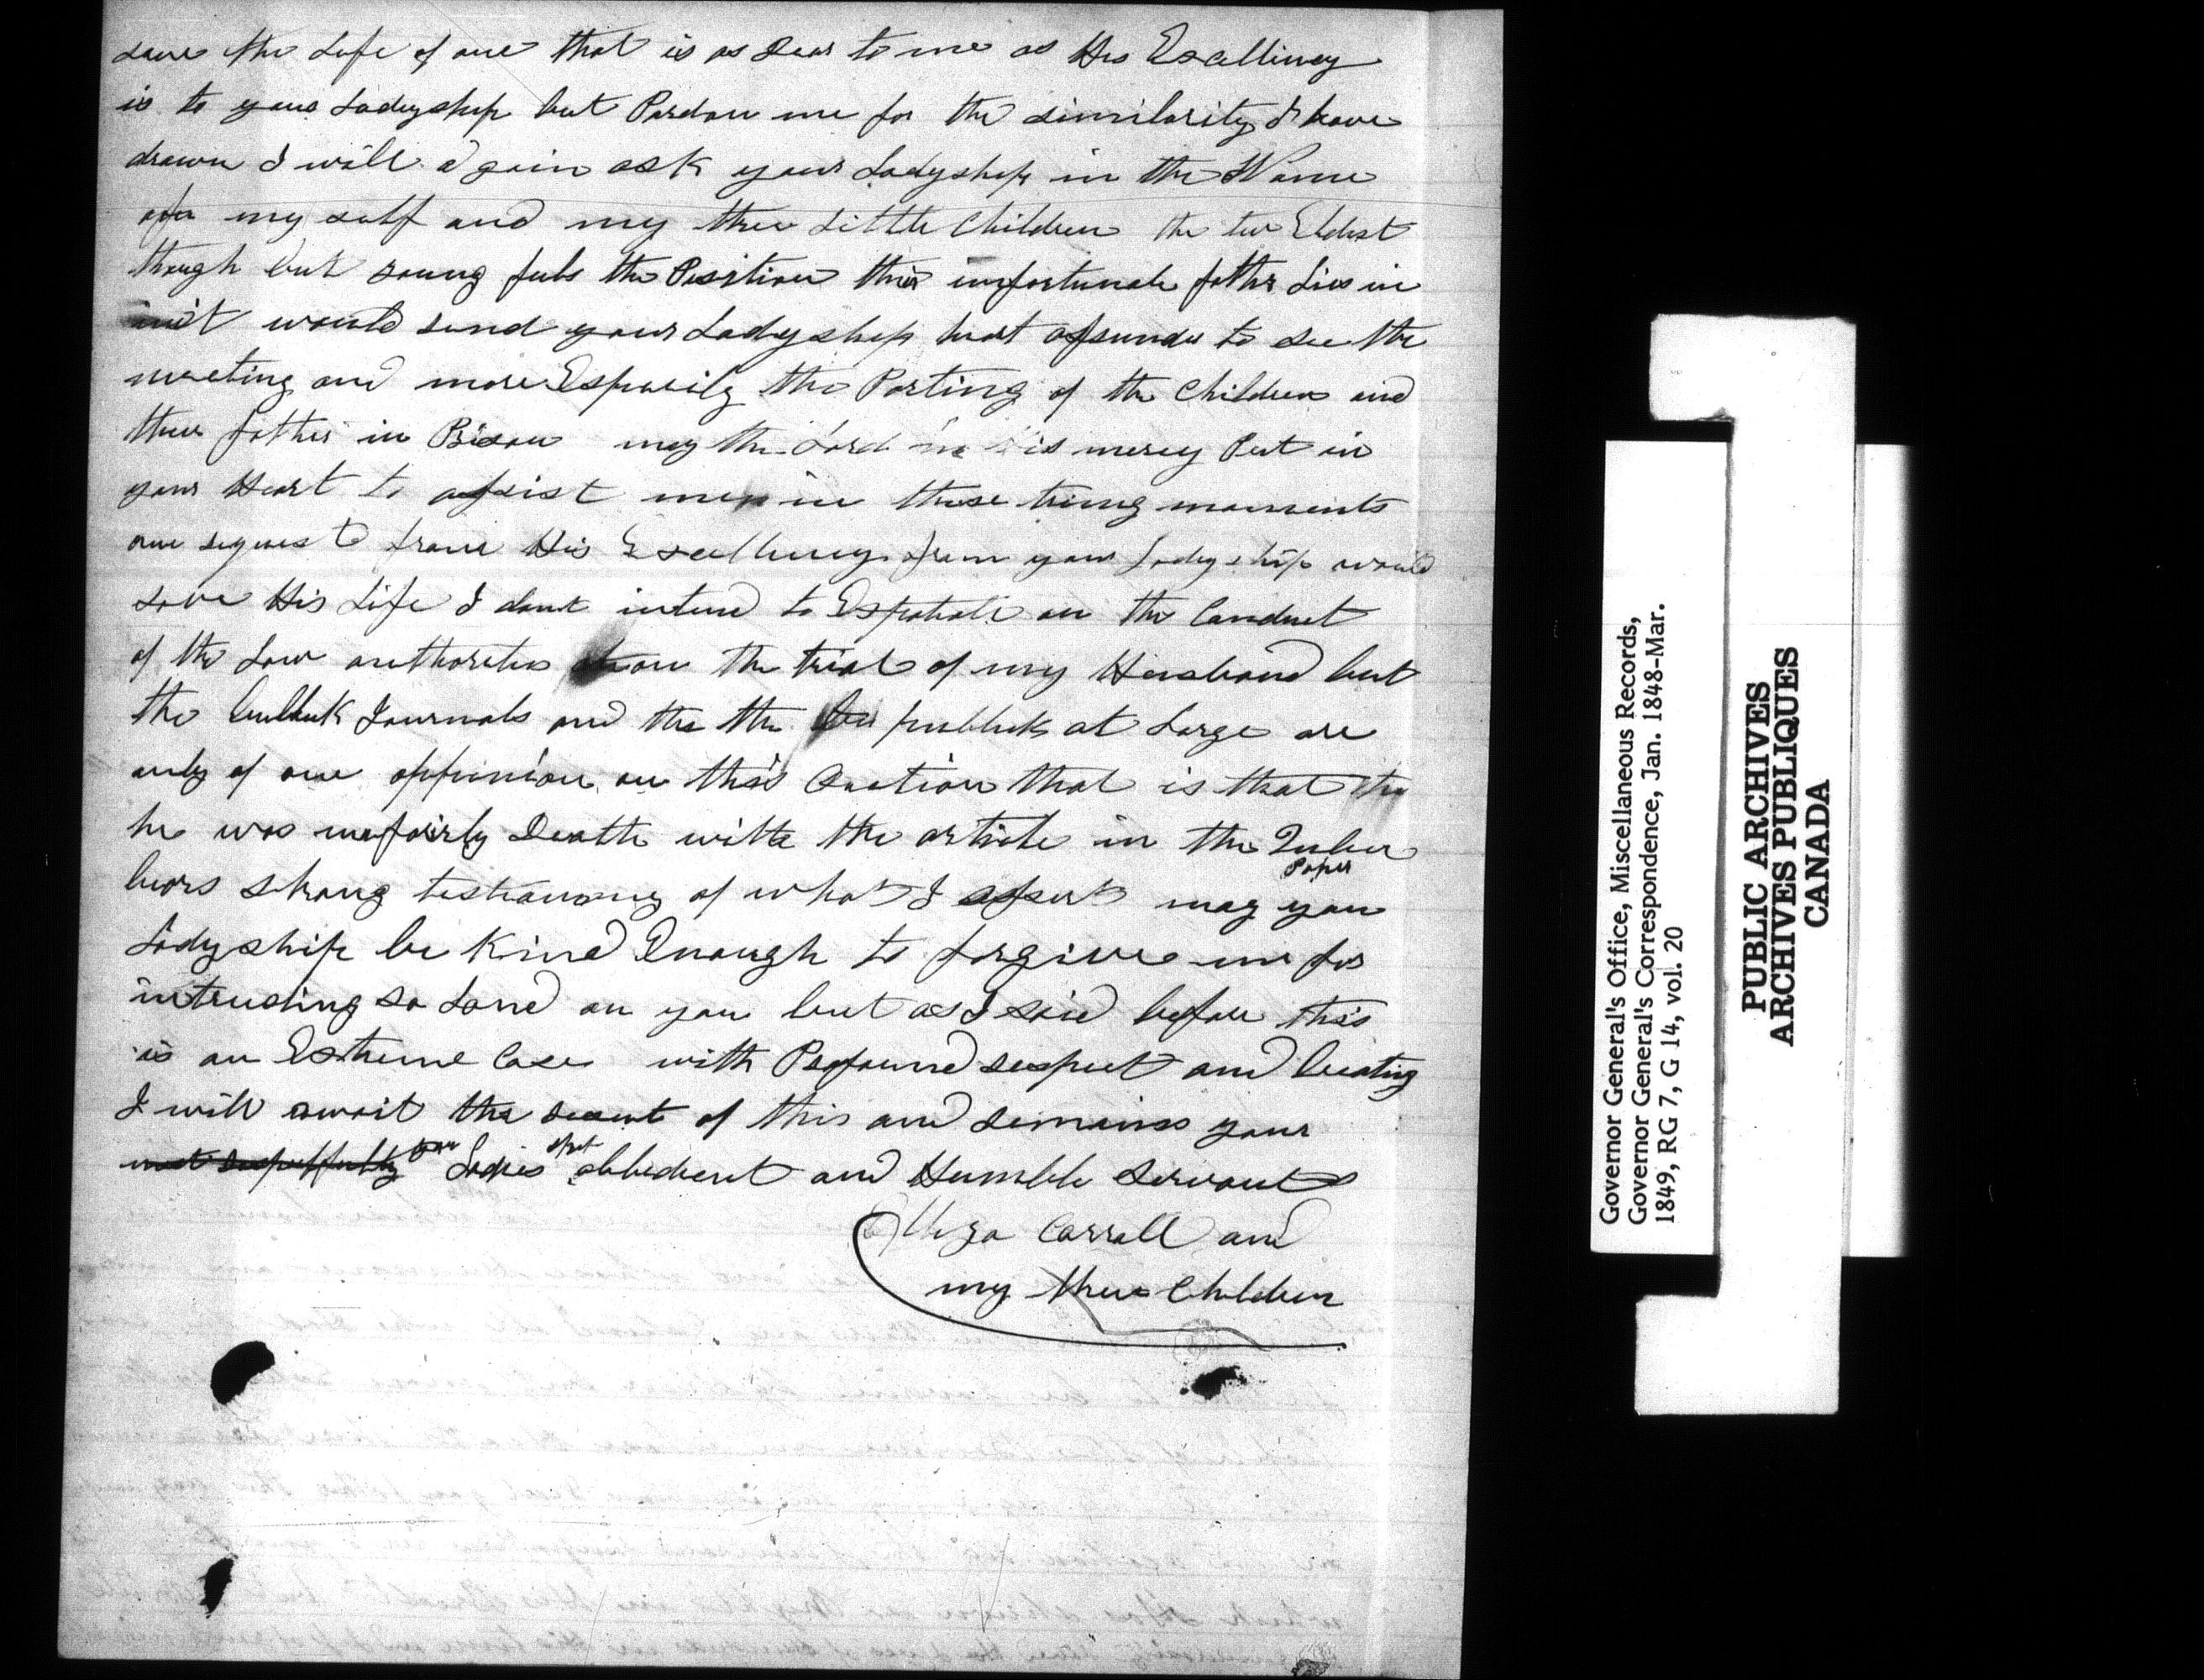 save the Life of one that is as Dear to me as His Excellincy
is to your Ladyship but Pardon me for the similarity I have
drawn I will again ask your Ladyship in the Name
of my self and my three Little Children the two Eldest
though but young feels the Position their unfortunate father Lies in
it would rend your Ladyship hart assunder to see the
meeting and more Espacily the Parting of the Children and
there father in Prison may the Lord in is mercy Put in
your Heart to assist me in these triing moments
one request from His Excellency from your Ladyship would
save His Life I dont intend to Expatiate on the Conduct
of the Law authorites on the trial of my Husband but
the Journals and the the publick at Large are
only of one oppinion on this Question that is that
he was unfairly Dealth with the article in the Quebec
Paper
bears strong testamony of what I assert may your
Ladyship be Kind Enough to forgive me for
intruding so Lond on you but as I said before this
is an Extreme Case with Profound respect and
I will await the of this and remains your
most respeffully your Ladies obbedient and Humble Servant
Eliza Carroll and
my three Children
Governor General's Office, Miscellaneous Records,
Governor General's Correspondence, Jan. 1848-Mar.
1849, RG 7, G 14, vol. 20
PUBLIC ARCHIVES
ARCHIVES PUBLIQUES
CANADA